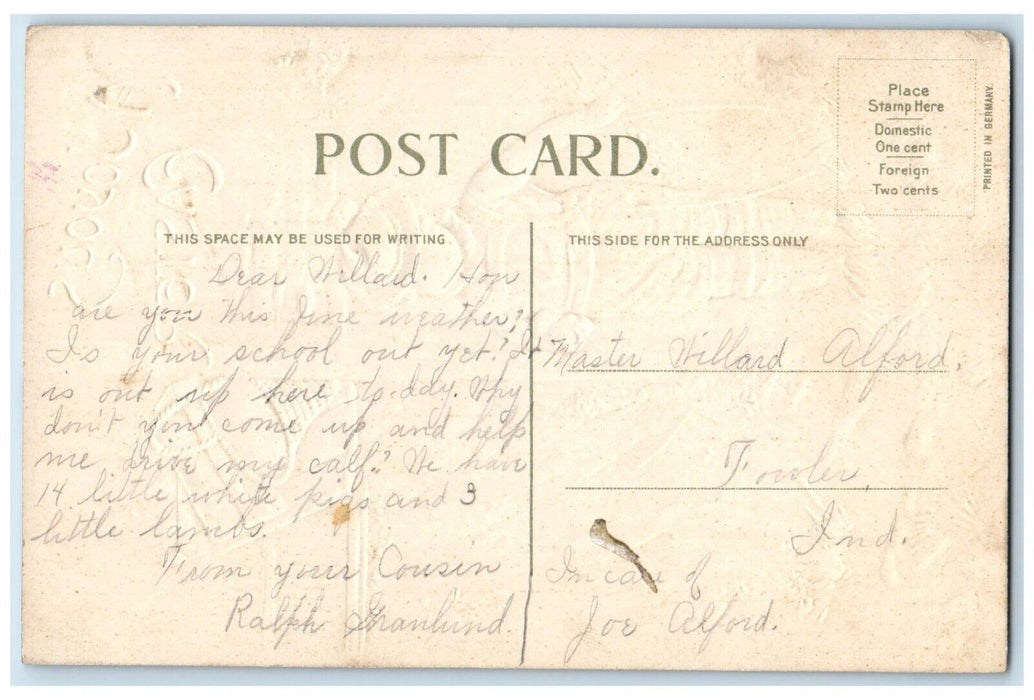 POST CARD.
Place
Stamp Here
Domestic
One cent
Foreign
Two cents
PRINTED IN GERMANY.
THIS SPACE MAY BE USED FOR WRITING.
Dear Willard. How
are you this fine weather?
Is your school out yet? It
is out up here to-day. Why
don't you come up and help
me drive my calf? We have
14 little white pigs and 3
little lambs.
From your Cousin
Ralph Granlund.
THIS SIDE FOR THE ADDRESS ONLY
Master Willard Alford.
Fowler,
Ind.
In care of
Joe Alford.